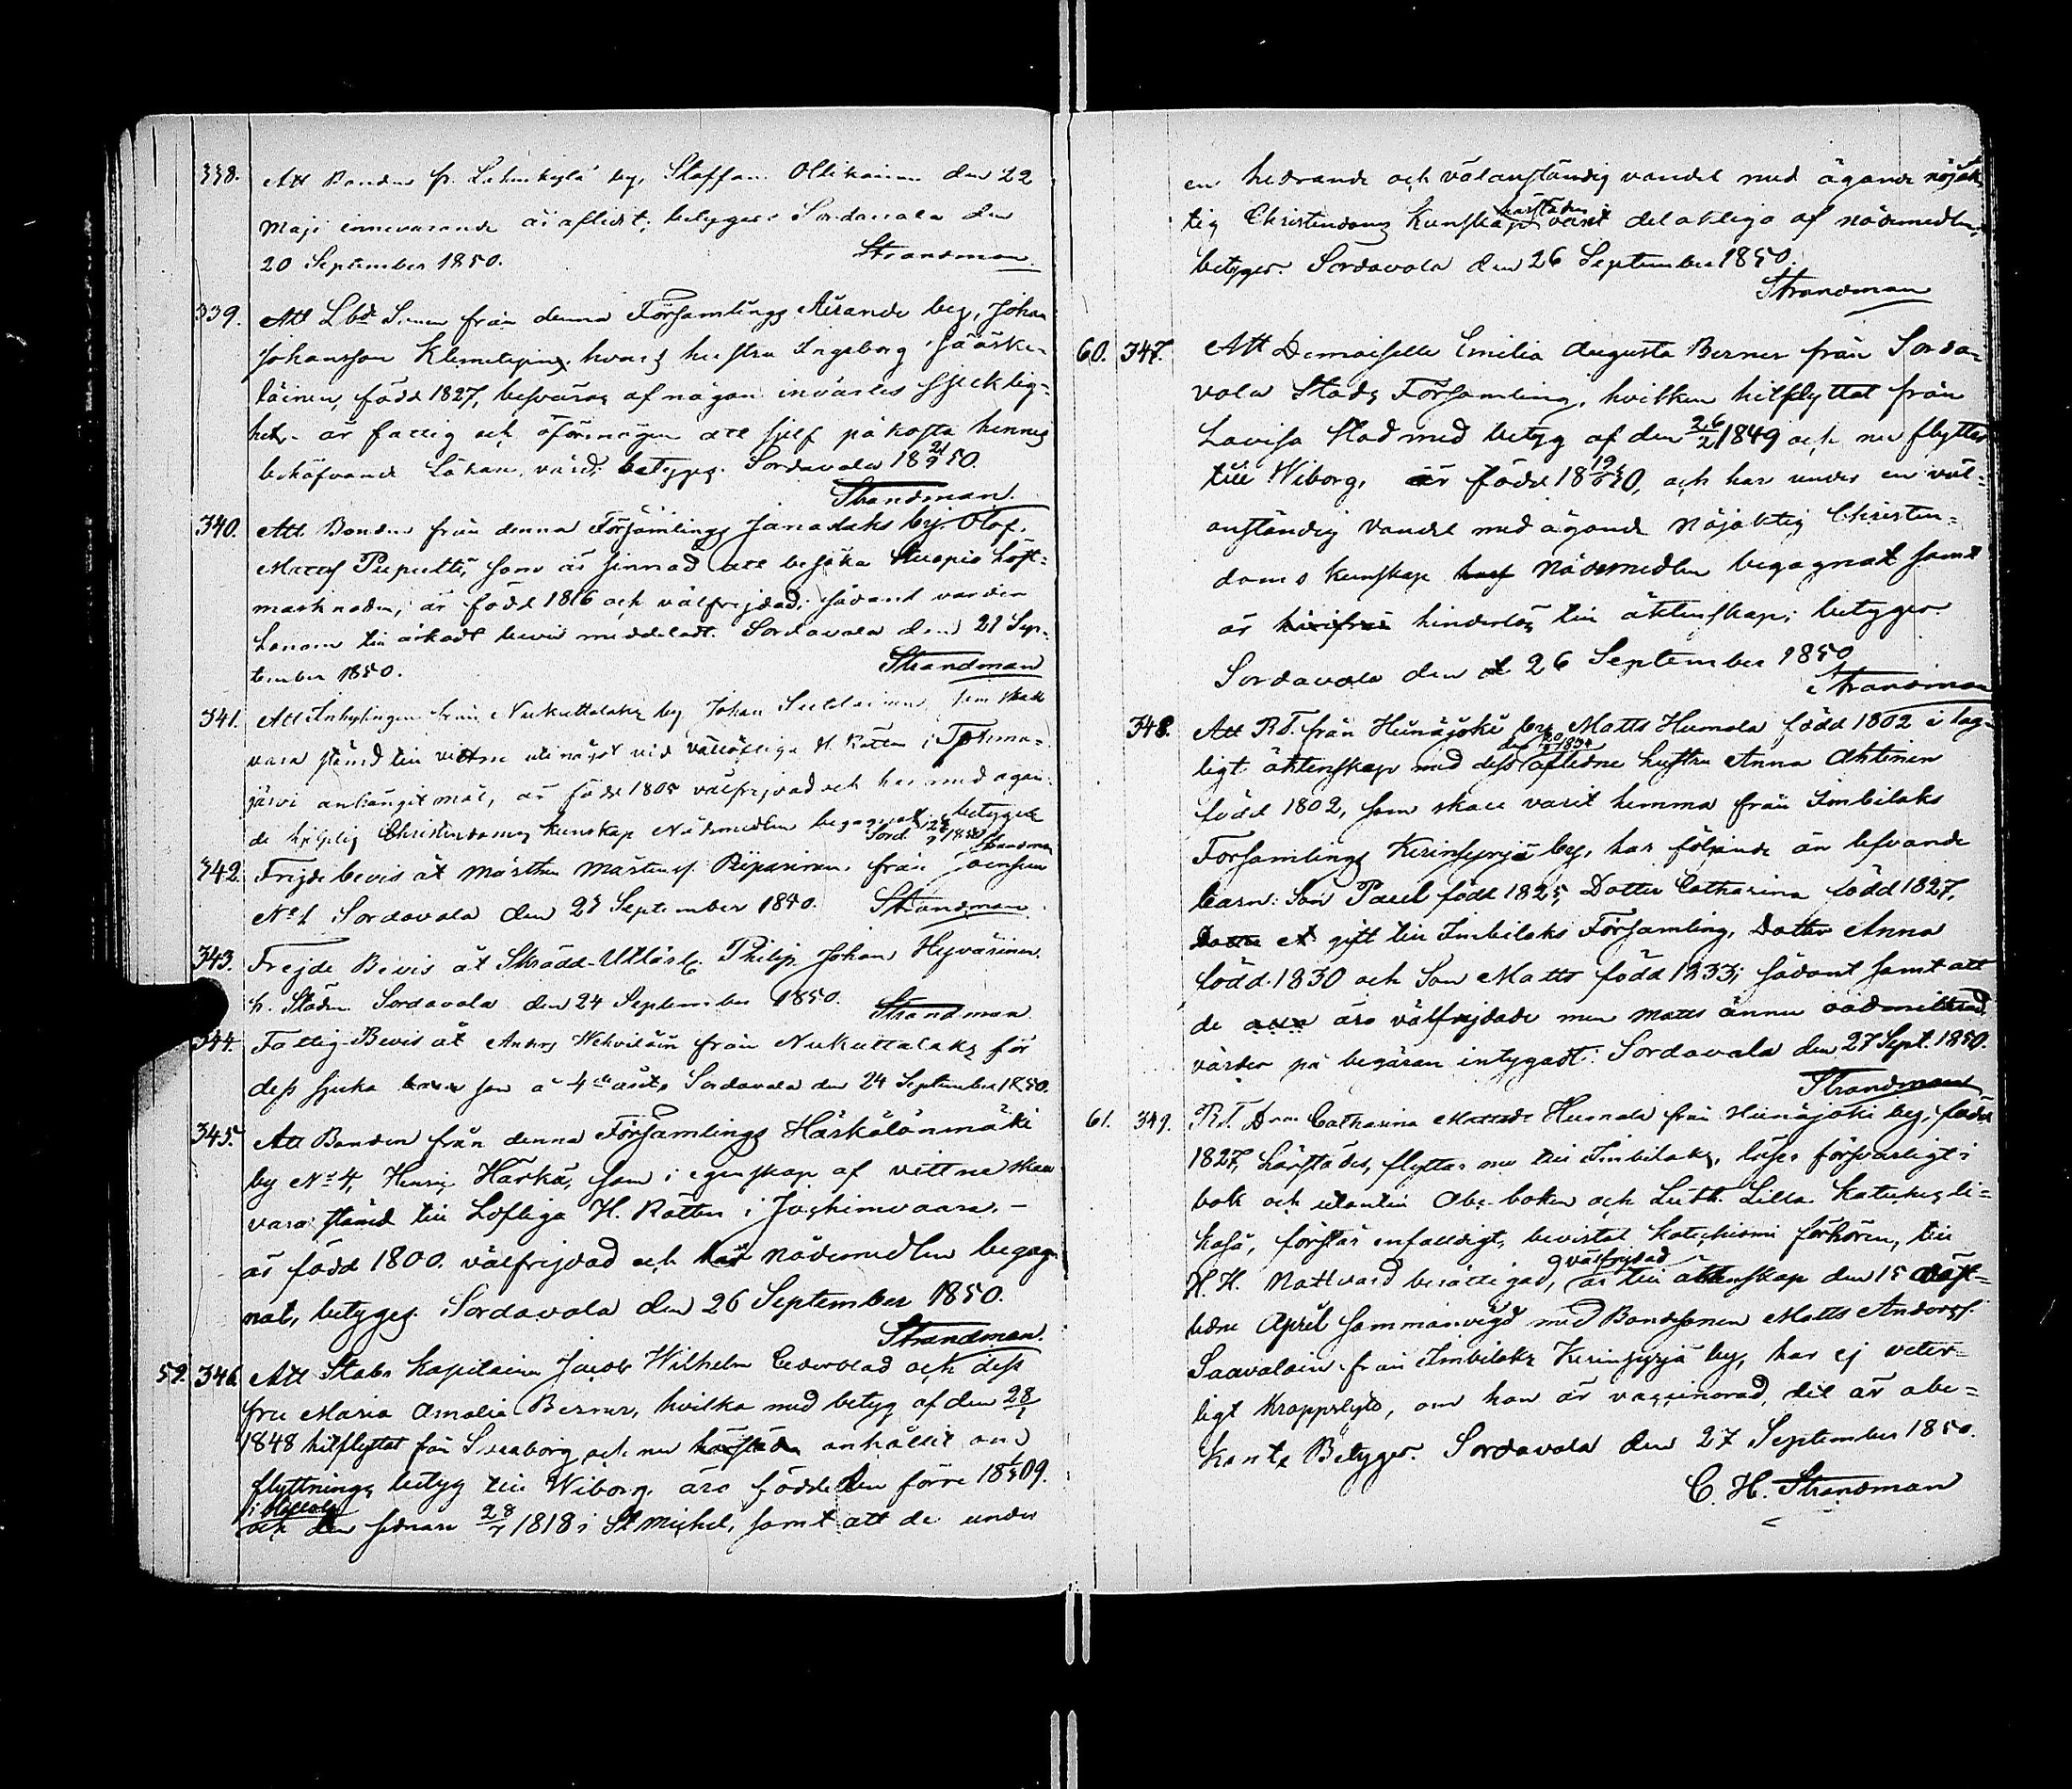 338. Att Bonden fr. Lahenkylä by, Staffan Ollikainen den 22
Maji innevarande år aflidit; betygas Sordavala den
20 September 1850. Strandman.
339. Att Lbde Sonen från denna Församlings Airanne by, Johan
Johansson Klemetinen hvars hustru Ingeborg Jääske-
läinen, född 1827, besväras af någon invärtes sjuklig-
het, är fattig och oförmögen att sjelf påkosta hennes
behöfvande Läkare vård; betygas. Sordavala 18 21/9 50.
Strandman.
340. Att Bonden från denna Församlings Janaslaks by Olof
Mattss Puputti, som är sinnad att besöka Kuopio höst-
marknaden, är född 1816 och välfrejdad; sådant varder
honom till äskadt bevis meddeladt. Sordavala den 21 Sep-
tember 1850. Strandman
341. Att Inhysingen från Nukuttalaks by Johan som skall
vara stämd till vittne uti något vid vällofliga H. Rätten i Tohma-
järvi anhängit mål, är född 1805 välfrejdad och har med ägan-
de hjelplig Christendoms kunskap Nådemedlen begagnat, betygas
Sord. 1850 Strandman
342. Frejdebevis åt Mårthen Mårtenss. från Joensuu
No 1 Sordavala den 23 September 1850. Strandman.
343. Frejde Bevis åt Skrädd. Philip Johan Hyvärinen
h. Staden Sordavala den 24 September 1850. Strandman
344. Fattig-Bevis åt Anders Wehviläin från Nukuttalaks för
dess sjuka son Sordavala den 24 September 1850.
345. Att Bonden från denna Församlings Härkälänmäki
by No 4, Henric Härkä, som i egenskap af vittne skall
vara stämd till Lofliga H. Rätten i Jochimvaara, -
är född 1800. välfrejdad och har nådemedlen begag-
nat, betygas. Sordavala den 26 September 1850.
Strandman.
59. 346. Att Stabs Kapitainen Jacob Wilhelm Cederblad och dess
fru Maria Amalia Berner, hvilka med betyg af den 28/
1848 hitflyttat från Sveaborg och nu härstädes anhållit om
flyttnings betyg till Wiborg, äro födde den förre 18 09.
i
och den sednare 28/7 1818 i St Michel, samt att de under
en hedrande och välanständig vandel med ägande nöjak-
tig Christendoms Kunskap härstädes varit delaktiga af nådemedlen,
betygas. Sordavala den 26 September 1850.
Strandman
60. 347. Att Demoiselle Emilia Augusta Berner från Sorda-
vala Stads Församling, hvilken hitflyttat från
Lovisa Stad med betyg af den 26/2 1849 och nu flyttar
till Wiborg, är född 18 19/ 0, och har under en väl-
anständig vandel med ägande nöjaktig Christen-
doms kunskap Nådemedlen begagnat samt
är hinderlös till äktenskap; betygas.
Sordavala den 26 September 1850
Strandman
348. Att R.T. från Hunajoki by Matts Humala född 1802 i lag-
ligt äktenskap med dess den aflidne hustru Anna Ahtinen
född 1802, som skall varit hemma från Imbilaks
Församlings Kerinsyrjä by, har följande än lefvande
barn: Son Paul född 1825, Dotter Catharina född 1827,
gift till Imbilaks Församling, Dotter Anna
född 1830 och Son Matts född 1833; sådant samt att
de äro välfrejdade men Matts ännu oadmitterad
varder på begäran intygadt. Sordavala den 27 Sept. 1850.
Strandman
61. 349. R.T. Catharina Mattsdr Humala från Hunajoki by, född
1827, härstädes, flyttar nu till Imbilaks, läser försvarligt i
bok och utantill Abc-boken och Luth. Lilla Kateches li-
kaså, förstår enfaldigt, bevistat Katechismi förhören, till
H. H. Nattvard berättigad, välfrejdad är till äktenskap den 15 näst-
lidne April sammanvigd med Bondesonen Matts Anderss.
Saavalain från Imbilaks Kerinsyrjä by, har ej veter-
ligt kroppslyte, om hon är vaccinerad, det är obe-
kant. Betygas. Sordavala den 27 September 1850.
C. H. Strandman